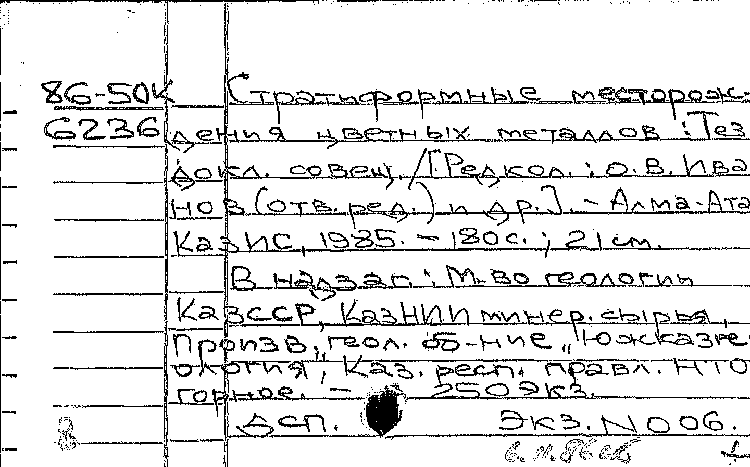 86-50К Стратиформные месторож-
6236 дения цветных металлов : Тез.
докл. совещ. / [Редкол. : О.В. Ива
нов (отв. ред.) и др.]. - Алма-Ата
КазИС, 1985. - 180с. ; 21см.
В надзаг. : М-во геологии
КазССР, КазНИИ минер. сырья,
Произв. геол. об-ние „Южказге
ология, Каз. респ. правл. НТО
горное. - 250экз.
ДСП. Экз. N006.
8